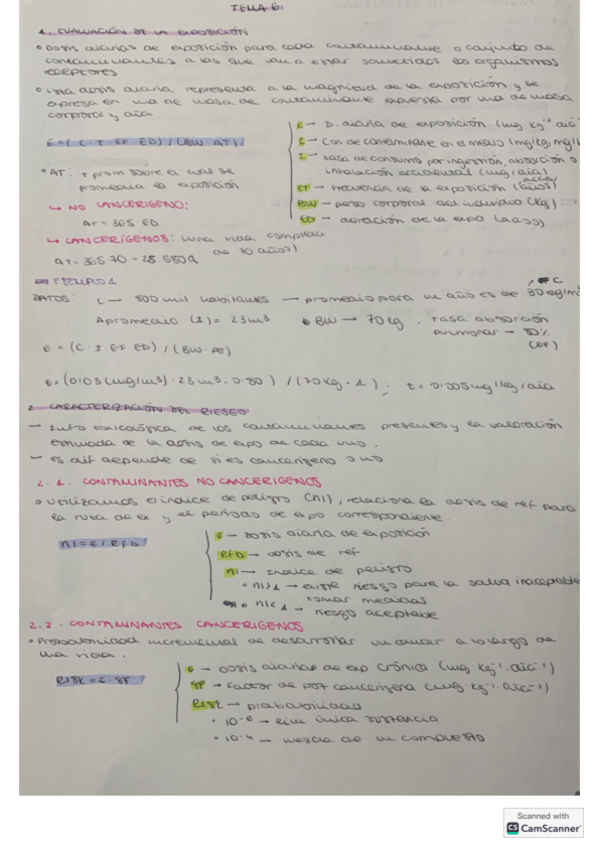 TEMA 6:
1. EVALUACIÓN DE LA EXPOSICIÓN
• Dosis diarias de exposición para cada contaminante o conjunto de
contaminantes a las que van a estar sometidos los organismos
receptores
• Una dosis diaria representa a la magnitud de la exposición y se
expresa en ud de masa de contaminante expuesta por ud de masa
corporal y día
E = (C · I · EF · ED) / (BW · AT)
E → D. diaria de exposición (mg kg⁻¹ día⁻¹)
C → Con de contaminante en el medio (mg/kg, mg/l)
I → tasa de consumo por ingestión, absorción o
inhalación accidental (mg/día)
EF → frecuencia de la exposición (años)
BW → peso corporal del individuo (kg)
ED → duración de la expo (años)
• AT: t prom sobre el cual se
promedia la exposición
↳ NO CANCERÍGENO:
AT = 365 · ED
↳ CANCERÍGENOS: (una vida completa
de 70 años)
AT = 365 · 70 = 25.550 d
EJEMPLO 1
DATOS: C → 500 mil habitantes → promedio para un año es de 30 mg/m³
C
A promedio (I) = 23 m³ • BW → 70 kg . Tasa absorción
pulmonar → 80%
(EF)
E = (C · I · EF · ED) / (BW · AT)
E = (0'03 (mg/m³) · 23 m³ · 0.80) / (70 kg · 1) ; E = 0'005 mg/kg/día
2. CARACTERIZACIÓN DEL RIESGO
→ Info toxicológica de los contaminantes presentes y la valoración
estimada de la dosis de expo de cada uno.
→ es dif depende de si es cancerígeno o no
2.1. CONTAMINANTES NO CANCERÍGENOS
• Utilizamos el índice de peligro (HI), relaciona la dosis de ref para
la ruta de ex y el periodo de expo correspondiente.
HI = E / RFD
E → dosis diaria de exposición
RfD → dosis de ref
HI → Índice de peligro
• HI > 1 → existe riesgo para la salud inaceptable
tomar medidas
• HI < 1 → riesgo aceptable
2.2. CONTAMINANTES CANCERÍGENOS
• Probabilidad incremental de desarrollar un cancer a lo largo de
una vida.
RISK = E · SF
E → dosis diarias de exp crónica (mg kg⁻¹ · día⁻¹)
SF → factor de pot cancerígena (mg kg⁻¹ · día⁻¹)
RISK → probabilidad
• 10⁻⁶ → única sustancia
• 10⁻⁴ → mezcla de un compuesto
Scanned with
CS CamScanner